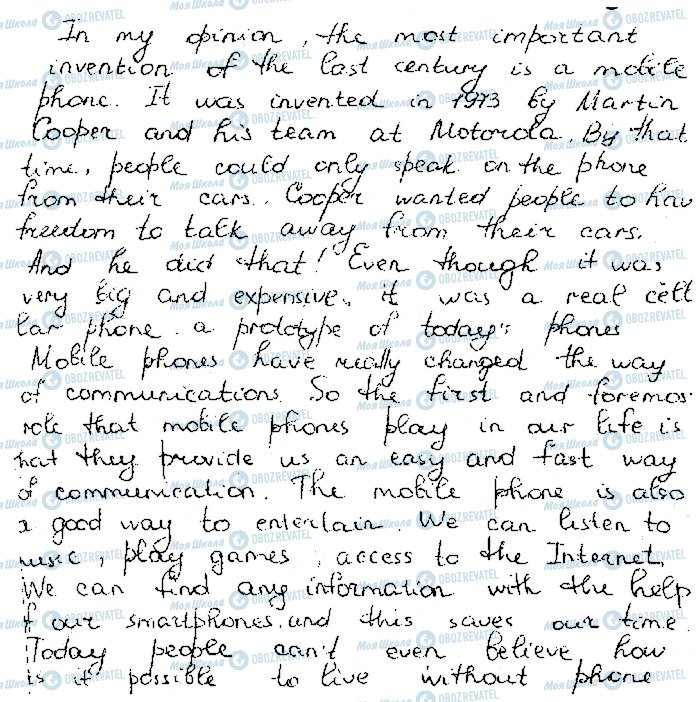 In my opinion, the most important
invention of the last century is a mobile
phone. It was invented in 1973 by Martin
Cooper and his team at Motorola. By that
time, people could only speak on the phone
from their cars. Cooper wanted people to hav
freedom to talk away from their cars.
And he did that! Even though it was
very big and expensive, it was a real cell
lar phone. a prototype of today's phones
Mobile phones have really changed the way
of communications. So the first and foremos
role that mobile phones play in our life is
hat they provide us an easy and fast way
of communication. The mobile phone is also
a good way to entertain. We can listen to
music, play games, access to the Internet.
We can find any information with the help
f our smartphones. and this saves our time.
Today people can't even believe how
is it possible to live without phone